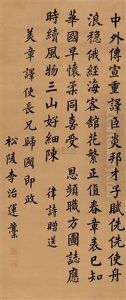 中外傳宣重譯臣炎邦才子賦侁侁使舟
浪穩俄經海客館花繁正值春章表已知
華國早懷柔同喜受恩頻職方圖誌應
時續風物三山好細陳 律詩贈送
美章譯使長兄歸國即政
松陵李治運藁